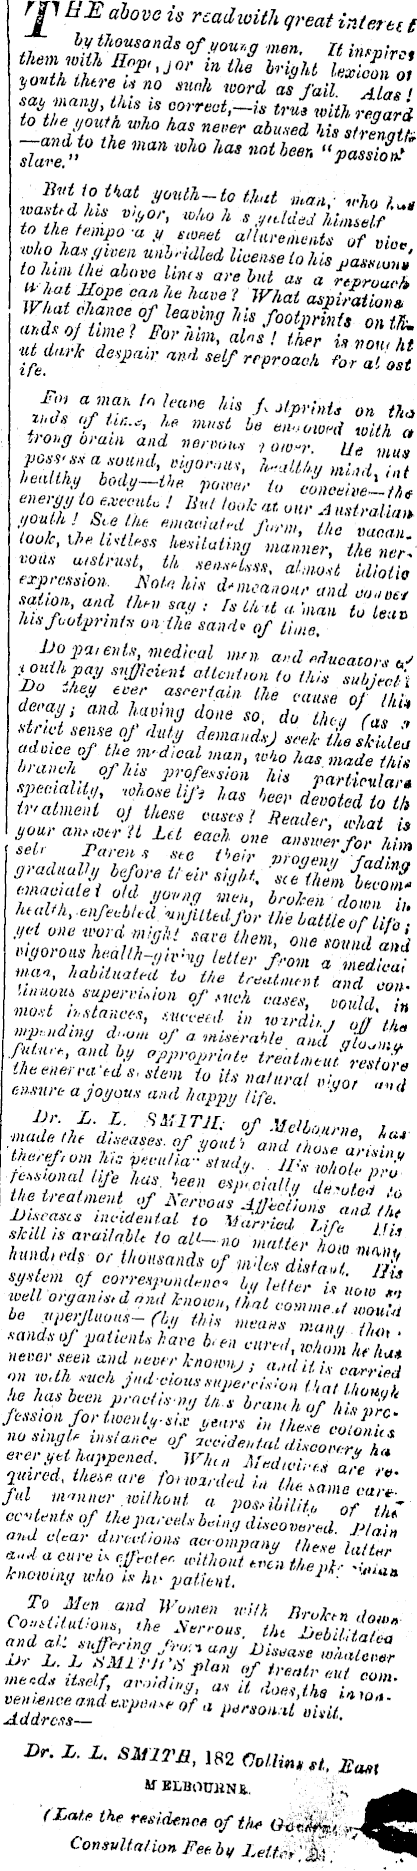 THE above is read with great interest
by thousands of young men. It inspires
them with Hope, for in the bright lexicon of
youth there is no such word as fail. Alas!
say many, this is correct,—is true with regard
to the youth who has never abused his strength
—and to the man who has not been "passion's
slave."
But to that youth—to that man, who has
wasted his vigor, who h s yielded himself
to the tempo a y sweet allurements of vice,
who has given unbridled license to his passions
to him the above lines are but as a reproach
What Hope can he have? What aspirations
What chance of leaving his footprints on the
ands of time? For him, alas! ther is nou ht
ut dark despair and self reproach for a! ost
ife.
For a man to leave his f otprints on the
ands of time, he must be endowed with a
trong brain and nervous power. He mus
possess a sound, vigorous, healthy mind, int
healthy body—the power to conceive—the
energy to execute! But look at our Australian
youth! See the emaciated form, the vacan.
look, the listless hesitating manner, the ner-
vous distrust, th senselsss, almost idiotic
expression. Note his demeanour and conver
sation, and then say: Is that a man to leav
his footprints on the sands of time.
Do parents, medical men and educators of
youth pay sufficient attention to this subject?
Do they ever ascertain the cause of this
decay; and having done so, do they (as a
strict sense of duty demands) seek the skilled
advice of the medical man, who has made this
branch of his profession his particular
speciality, whose life has been devoted to th
treatment of these cases? Reader, what is
your answer?! Let each one answer for him
self Paren s see their progeny fading
gradually before their sight, see them become
emaciated old young men, broken down in
health, enfeebled, unfitted for the battle of life;
yet one word might save them, one sound and
vigorous health-giving letter from a medical
man, habituated to the treatment and con-
tinuous supervision of such cases, would, in
most instances, succeed in warding off the
mpending doom of a miserable and gloomy
future, and by appropriate treatment restore
the enervated system to its natural vigor and
ensure a joyous and happy life.
Dr. L. L. SMITH, of Melbourne, has
made the diseases of youth and those arising
therefrom his peculiar study. His whole pro
fessional life has been especially devoted to
the treatment of Nervous Affections and the
Diseases incidental to Married Life His
skill is available to all—no matter how many
hundreds or thousands of miles distant. His
system of correspondence by letter is now so
well organised and known, that comment would
be uperfluous—(by this means many thou-
sands of patients have been cured, whom he has
never seen and never known); and it is carried
on with such judicious supervision that though
he has been practising this branch of his pro-
fession for twenty-six years in these colonies
no single instance of accidental discovery ha
ever yet happened. When Medicines are re-
quired, these are forwarded in the same care-
ful manner without a possibility of the
contents of the parcels being discovered. Plain
and clear directions accompany these latter
and a cure is effected without even the physician
knowing who is his patient.
To Men and Women with Broken down
Constitutions, the Nervous, the Debilitated
and all suffering from any Disease whatever
Dr L. L SMITH'S plan of treatm ent com-
mends itself, avoiding, as it does, the incon-
venience and expense of a personal visit.
Address—
Dr. L. L. SMITH, 182 Collins st, East
MELBOURNE.
(Late the residence of the
Consultation Fee by Letter,